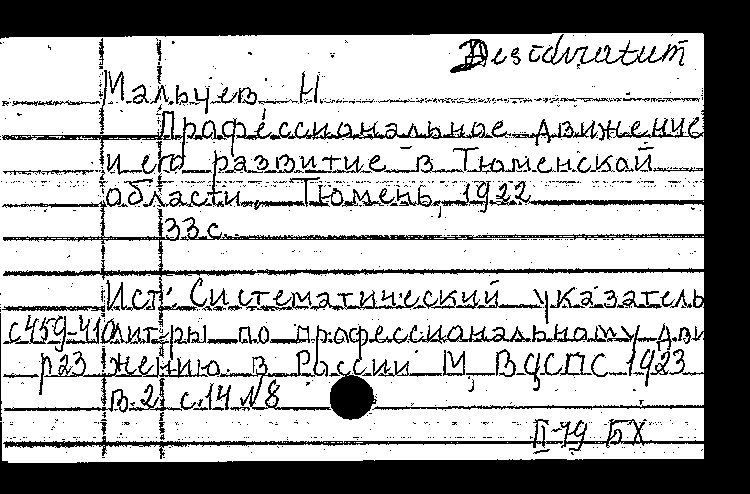 Desidiratum
Мальцев Н
Профессиональное движение
и его развитие в Тюменской
области, Тюмень, 1922
33с.
Ист: Систематический указатель
с459-410 лит-ры по профессиональному дви
р23 жению в России М, ВЦСПС 1923
в.2 с.14 №8
II-79 БХ